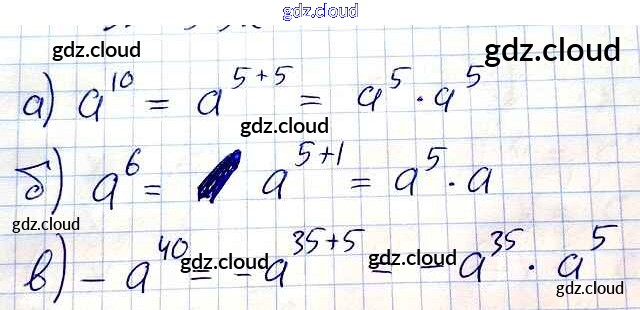 gdz.cloud
gdz.cloud gdz.cloud
а) a^10 = a^5+5 = a^5 · a^5
gdz.cloud
б) a^6 = a^5+1 = a^5 · a
gdz.cloud gdz.cloud
в) - a^40 = - a^35+5 = - a^35 · a^5
gdz.cloud gdz.cloud gdz.cloud